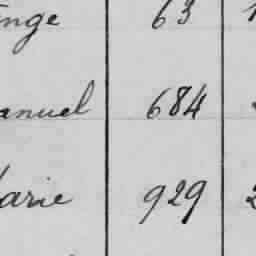 ange 63
anuel 684
arie 929 2